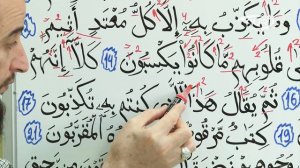 وَمَا يُكَذِّبُ بِهِ إِلَّا كُلُّ مُعْتَدٍ
قُلُوبِهِم مَّا كَانُوا يَكْسِبُونَ ١٤ كَلَّا إِنَّهُمْ
ثُمَّ يُقَالُ هَٰذَا كُنتُم بِهِ تُكَذِّبُونَ ١٧
كِتَٰبٌ مَّرْقُومٌ الْمُقَرَّبُونَ ٢١